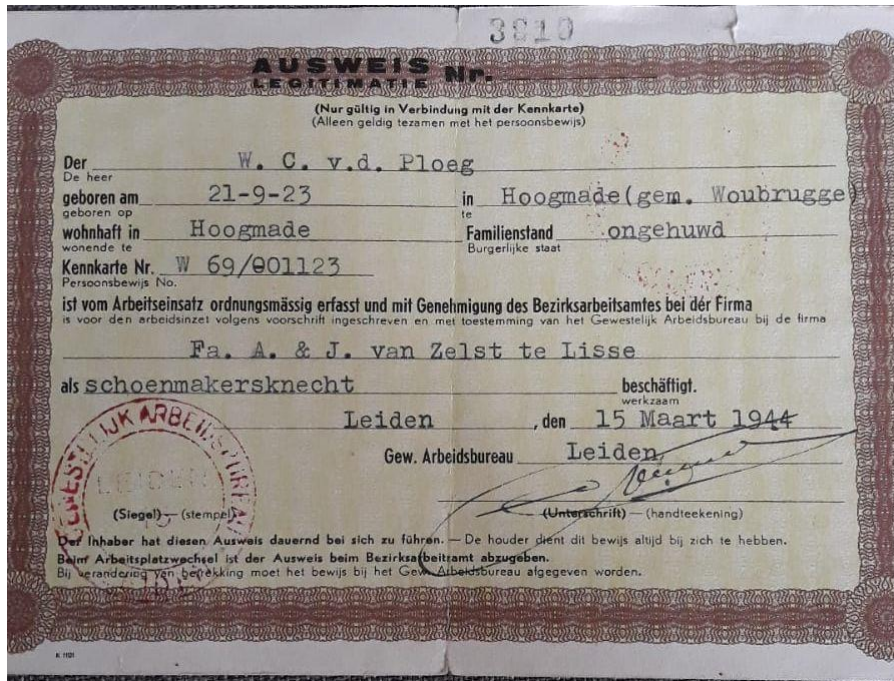 3819
AUSWEIS Nr.
LEGITIMATIE
(Nur gültig in Verbindung mit der Kennkarte)
(Alleen geldig tezamen met het persoonsbewijs)
Der W. C. v.d. Ploeg
De heer
geboren am 21-9-23 in Hoogmade(gem. Woubrugge)
geboren op te
wohnhaft in Hoogmade Familienstand ongehuwd
wonende te Burgerlijke staat
Kennkarte Nr. W 69/001123
Persoonsbewijs No.
ist vom Arbeitseinsatz ordnungsmässig erfasst und mit Genehmigung des Bezirksarbeitsamtes bei der Firma
is voor den arbeidsinzet volgens voorschrift ingeschreven en met toestemming van het Gewestelijk Arbeidsbureau bij de firma
Fa. A. & J. van Zelst te Lisse
als schoenmakersknecht beschäftigt.
werkzaam
Leiden , den 15 Maart 1944
Gew. Arbeidsbureau Leiden
GEWESTELIJK ARBEIDSBUREAU
LEIDEN
(Siegel) — (stempel) (Unterschrift) — (handteekening)
Der Inhaber hat diesen Ausweis dauernd bei sich zu führen. — De houder dient dit bewijs altijd bij zich te hebben.
Beim Arbeitsplatzwechsel ist der Ausweis beim Bezirksarbeitramt abzugeben.
Bij verandering van betrekking moet het bewijs bij het Gew. Arbeidsbureau afgegeven worden.